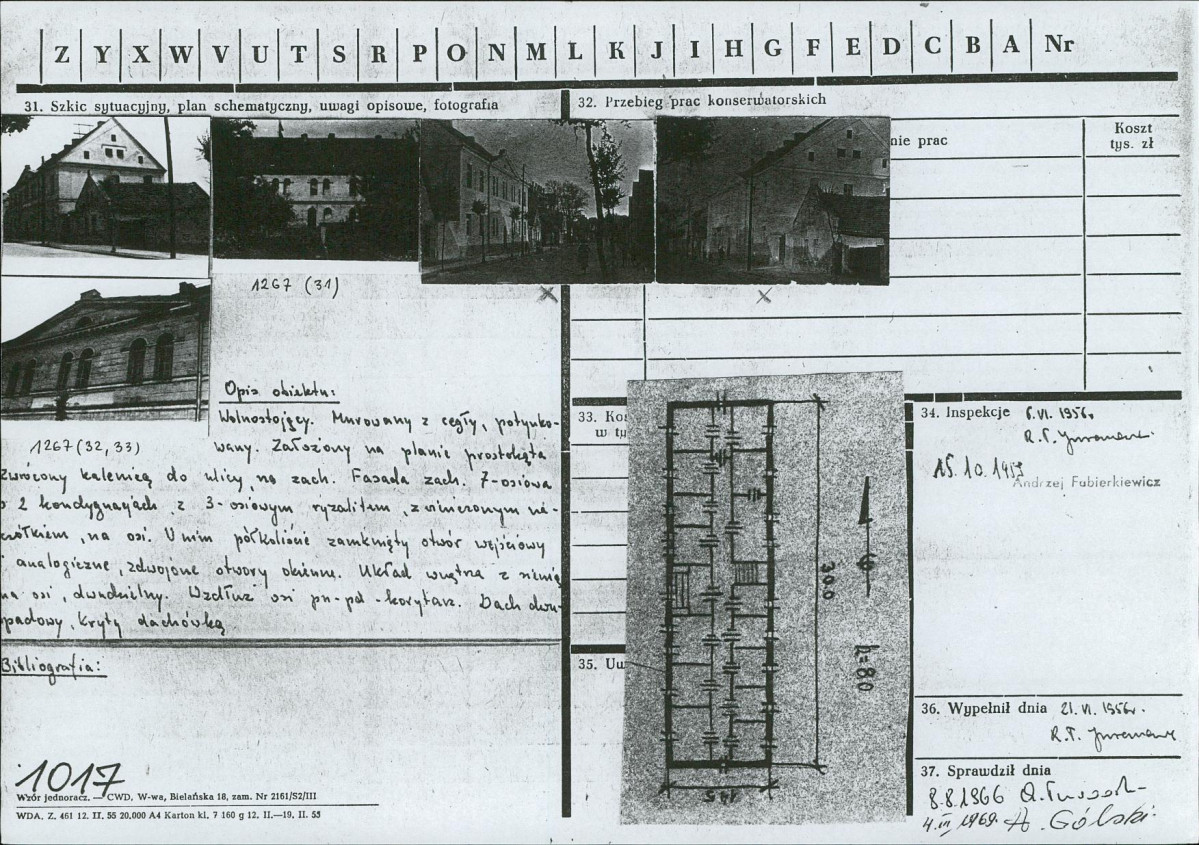 Z Y X W V U T S R P O N M L K J I H G F E D C B A Nr
31. Szkic sytuacyjny, plan schematyczny, uwagi opisowe, fotografia
32. Przebieg prac konserwatorskich
nie prac
Koszt
tys. zł
1267 (31)
1267 (32, 33)
Opis obiektu:
Wolnostojący. Murowany z cegły, potynko-
wany. Założony na planie prostokąta
zwrócony kalenicą do ulicy, na zach. Fasada zach. 7-osiowa
o 2 kondygnacjach z 3-osiowym ryzalitem, zwieńczonym
, na osi. W nim półkoliście zamknięty otwór wejściowy
i analogiczne, zdwojone otwory okienne. Układ wnętrza z sienią
na osi, dwudzielny. Wzdłuż osi pn-pd - korytarz. Dach dwu-
spadowy, kryty dachówką
Bibliografia:
1017
Wzór jednoracz. — CWD, W-wa, Bielańska 18, zam. Nr 2161/S2/III
WDA. Z. 461 12. II. 55 20,000 A4 Karton kl. 7 160 g 12. II.—19. II. 55
33. Ko
w ty
35. Uw
30.0
h=8.0
14.5
34. Inspekcje 6.VI. 1956r
15.10.
Andrzej Fubierkiewicz
36. Wypełnił dnia 21.VI. 1956r.
37. Sprawdził dnia
8.8.1966
1969. A. Gólski